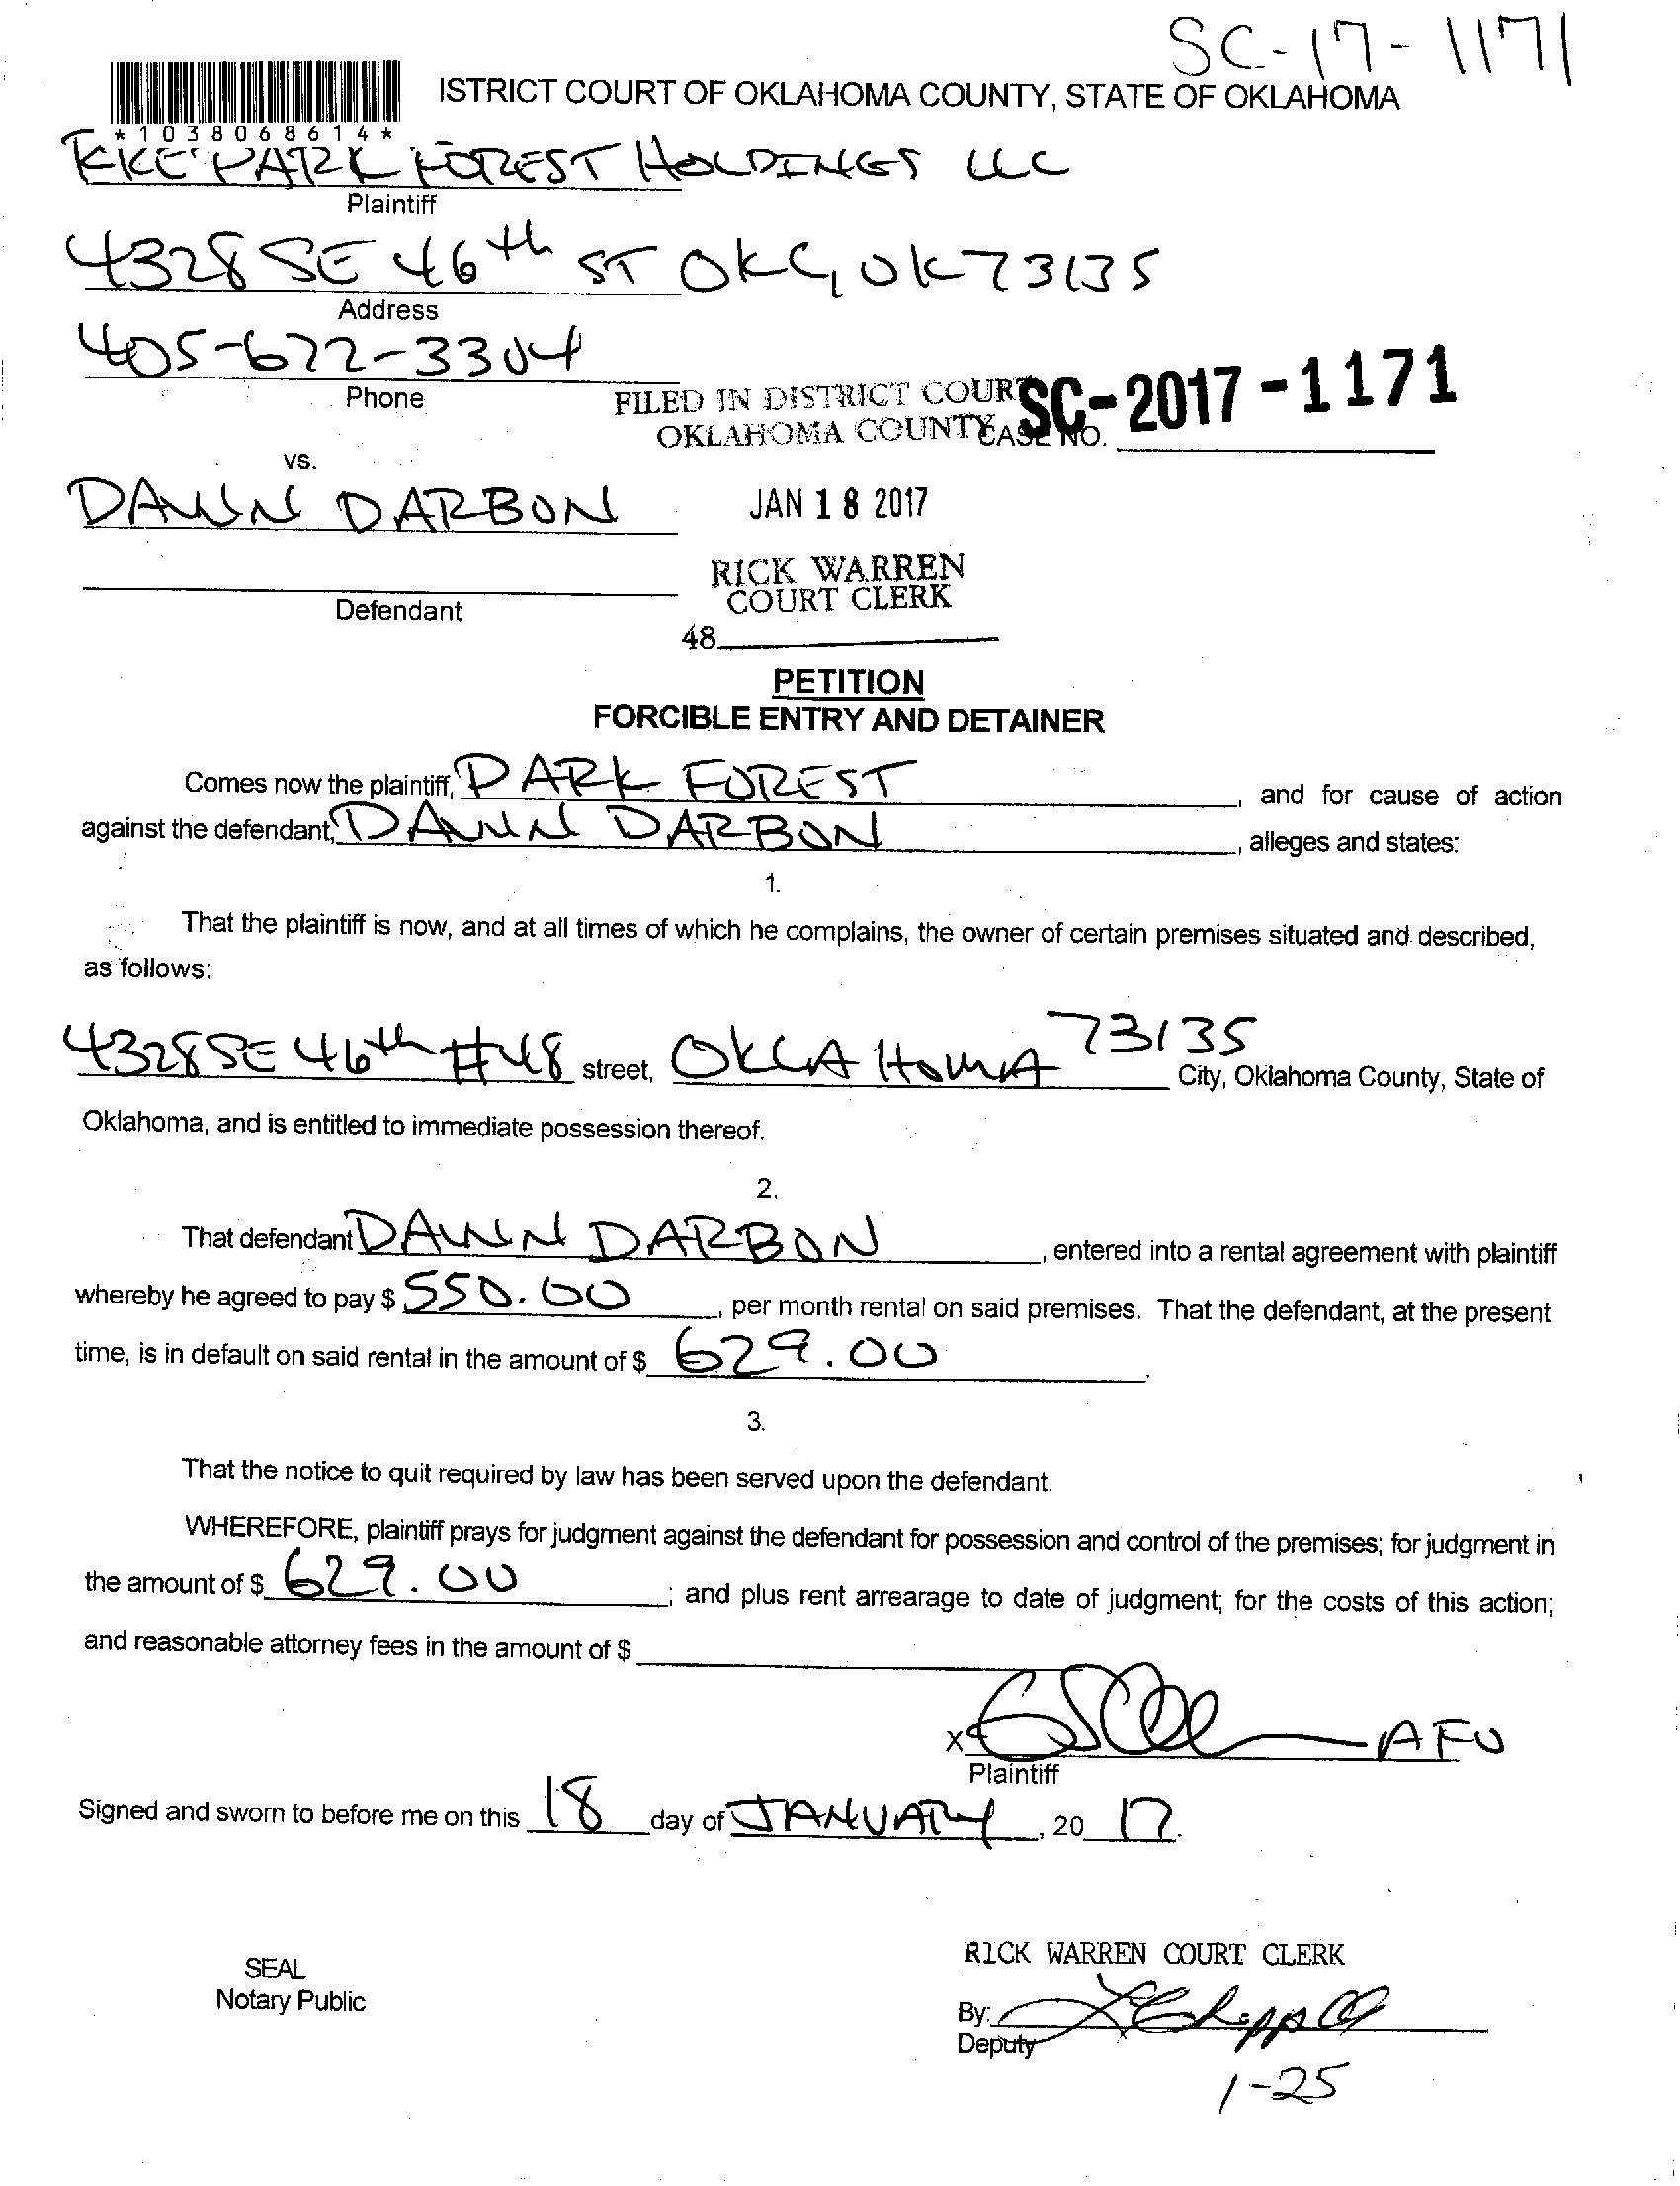 SC-17-1171
ISTRICT COURT OF OKLAHOMA COUNTY, STATE OF OKLAHOMA
*1038068614*
PARK FOREST HOLDINGS LLC
Plaintiff
4328 SE 46th ST OKC, OK 73135
Address
405-672-3304
Phone
FILED IN DISTRICT COURT
OKLAHOMA COUNTY
CASE NO. SC-2017-1171
vs.
DAWN DARBON
JAN 18 2017
RICK WARREN
COURT CLERK
Defendant
48
PETITION
FORCIBLE ENTRY AND DETAINER
Comes now the plaintiff, PARK FOREST, and for cause of action
against the defendant, DAWN DARBON, alleges and states:
1.
That the plaintiff is now, and at all times of which he complains, the owner of certain premises situated and described,
as follows:
4328 SE 46th #48 street, OKLAHOMA 73135 City, Oklahoma County, State of
Oklahoma, and is entitled to immediate possession thereof.
2.
That defendant DAWN DARBON, entered into a rental agreement with plaintiff
whereby he agreed to pay $ 550.00, per month rental on said premises. That the defendant, at the present
time, is in default on said rental in the amount of $ 629.00.
3.
That the notice to quit required by law has been served upon the defendant.
WHEREFORE, plaintiff prays for judgment against the defendant for possession and control of the premises; for judgment in
the amount of $ 629.00; and plus rent arrearage to date of judgment; for the costs of this action;
and reasonable attorney fees in the amount of $
X
Plaintiff
Signed and sworn to before me on this 18 day of JANUARY, 20 17.
RICK WARREN COURT CLERK
SEAL
Notary Public
By:
Deputy
1-25